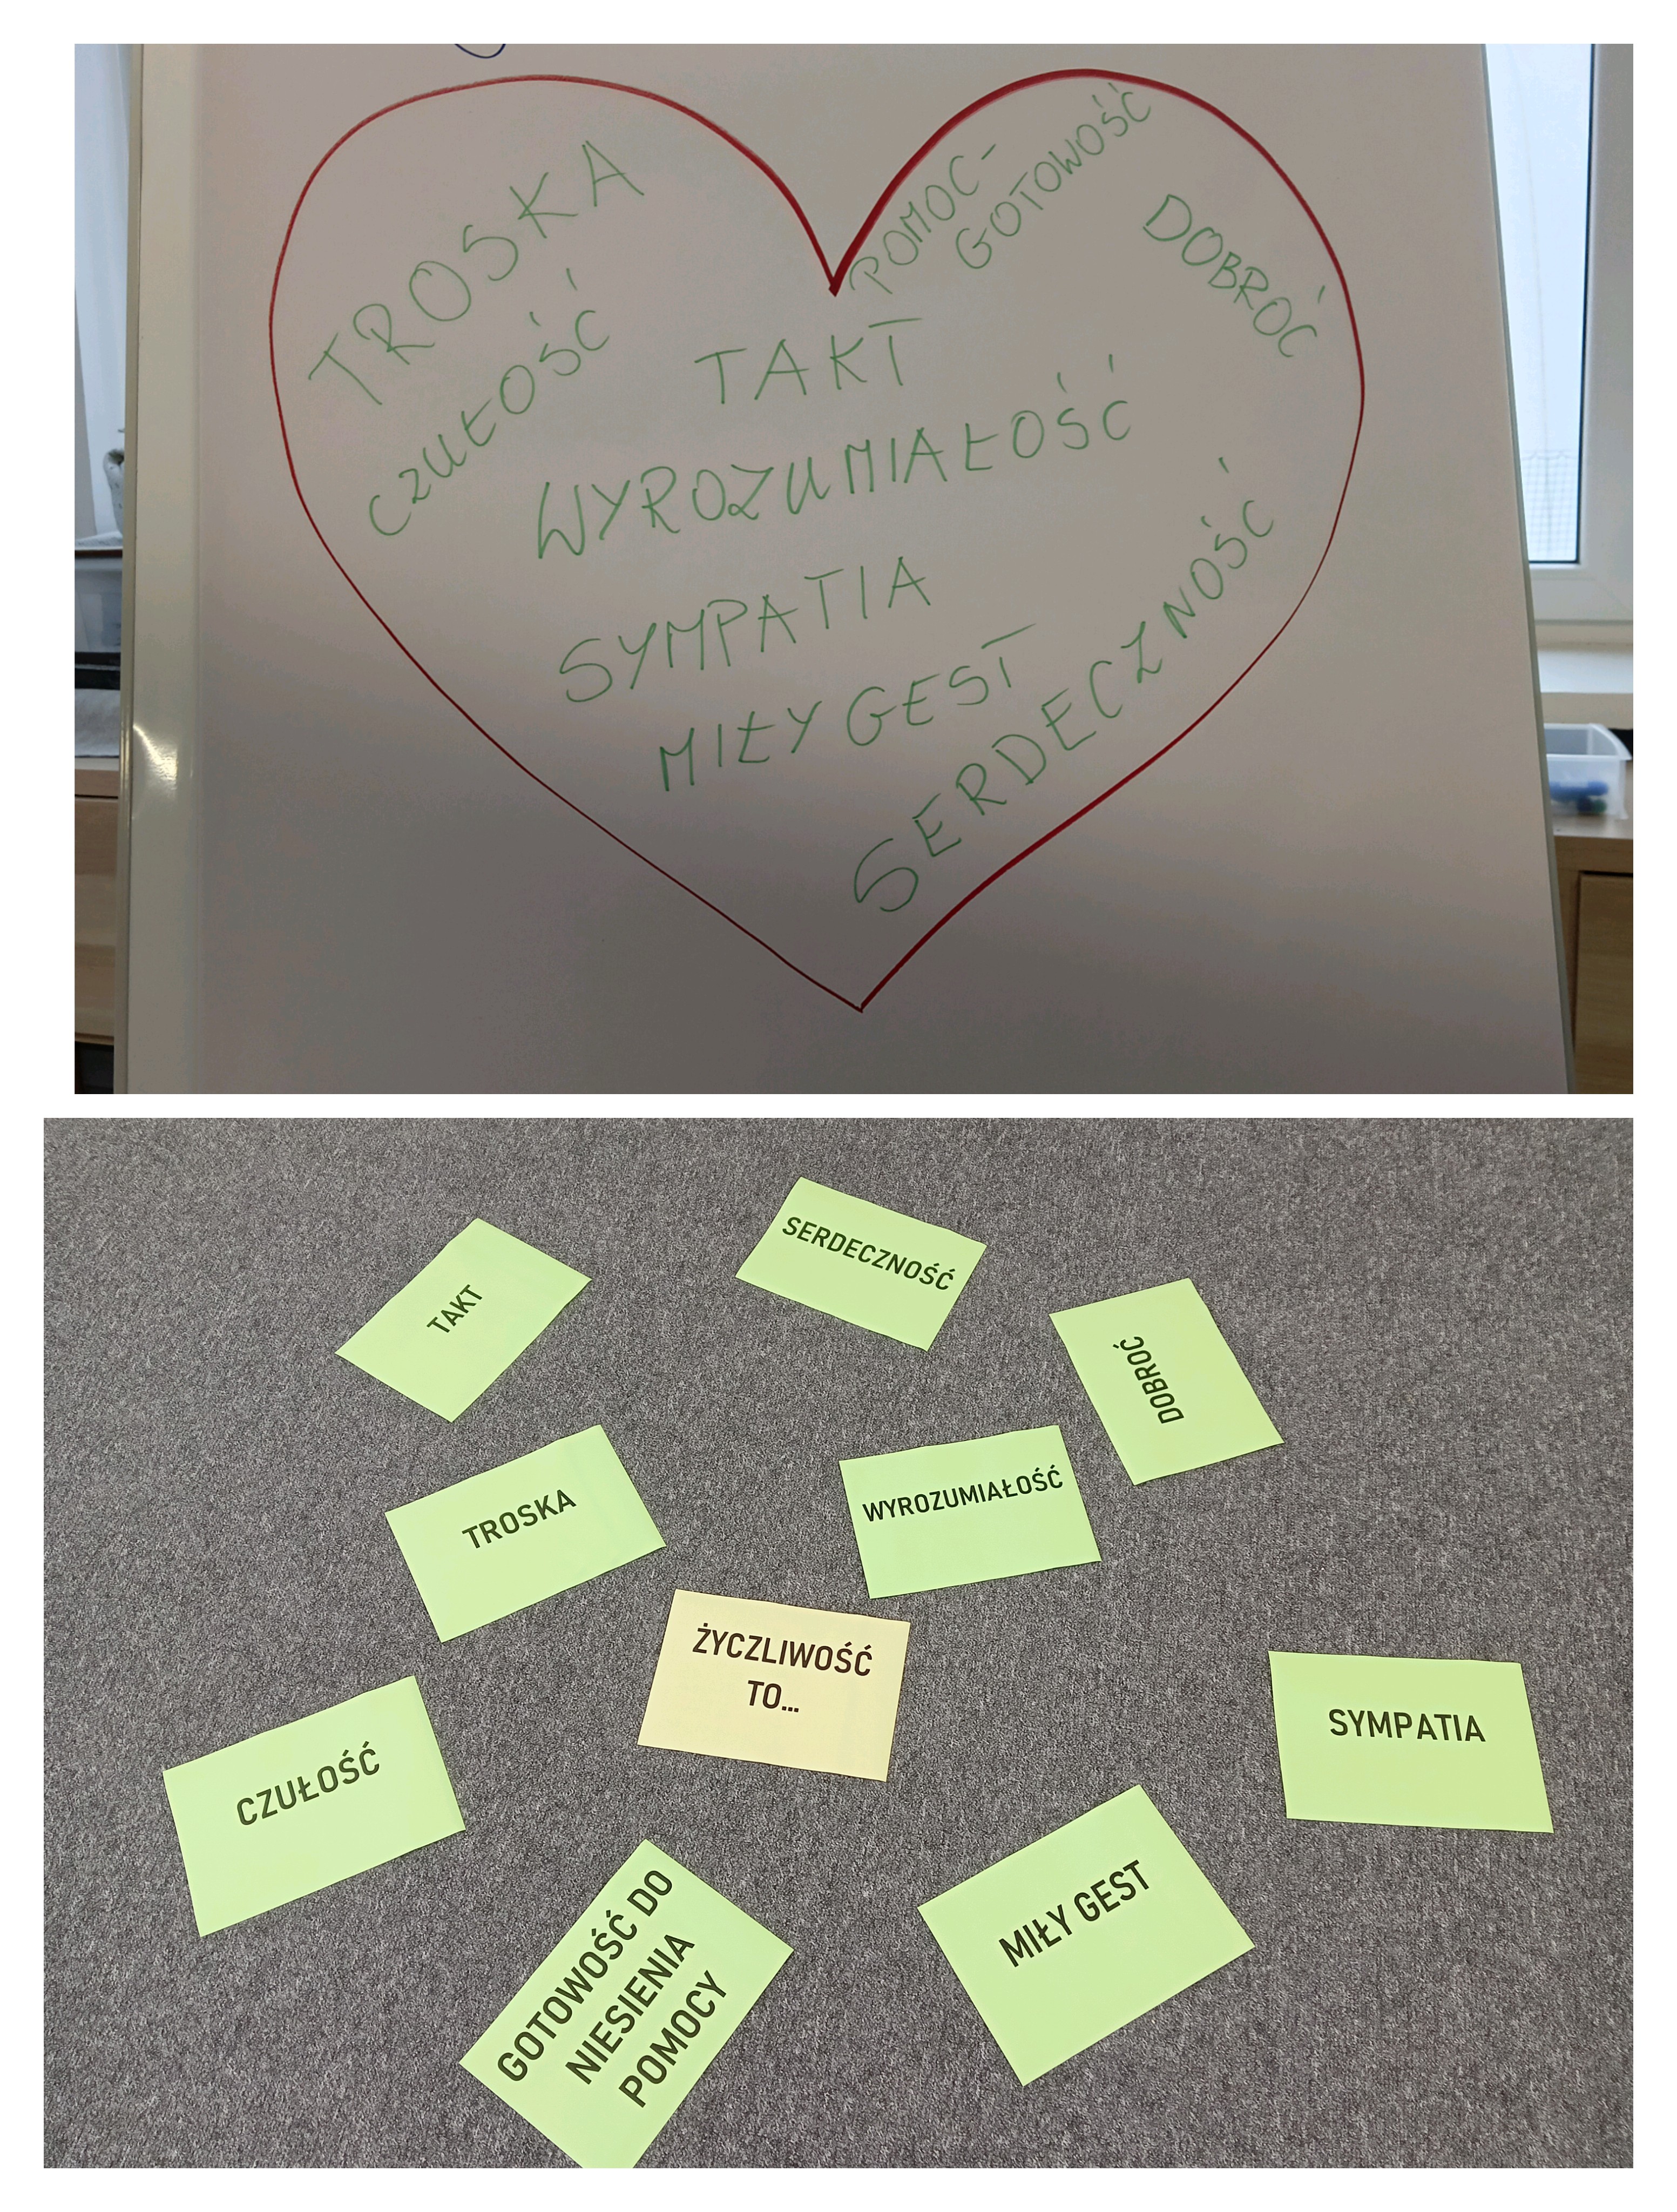 TROSKA
CZUŁOŚĆ
POMOC-
GOTOWOŚĆ
DOBROĆ
TAKT
WYROZUMIAŁOŚĆ
SYMPATIA
MIŁY GEST
SERDECZNOŚĆ
TAKT
SERDECZNOŚĆ
DOBROĆ
TROSKA
WYROZUMIAŁOŚĆ
ŻYCZLIWOŚĆ
TO...
CZUŁOŚĆ
SYMPATIA
GOTOWOŚĆ DO
NIESIENIA
POMOCY
MIŁY GEST